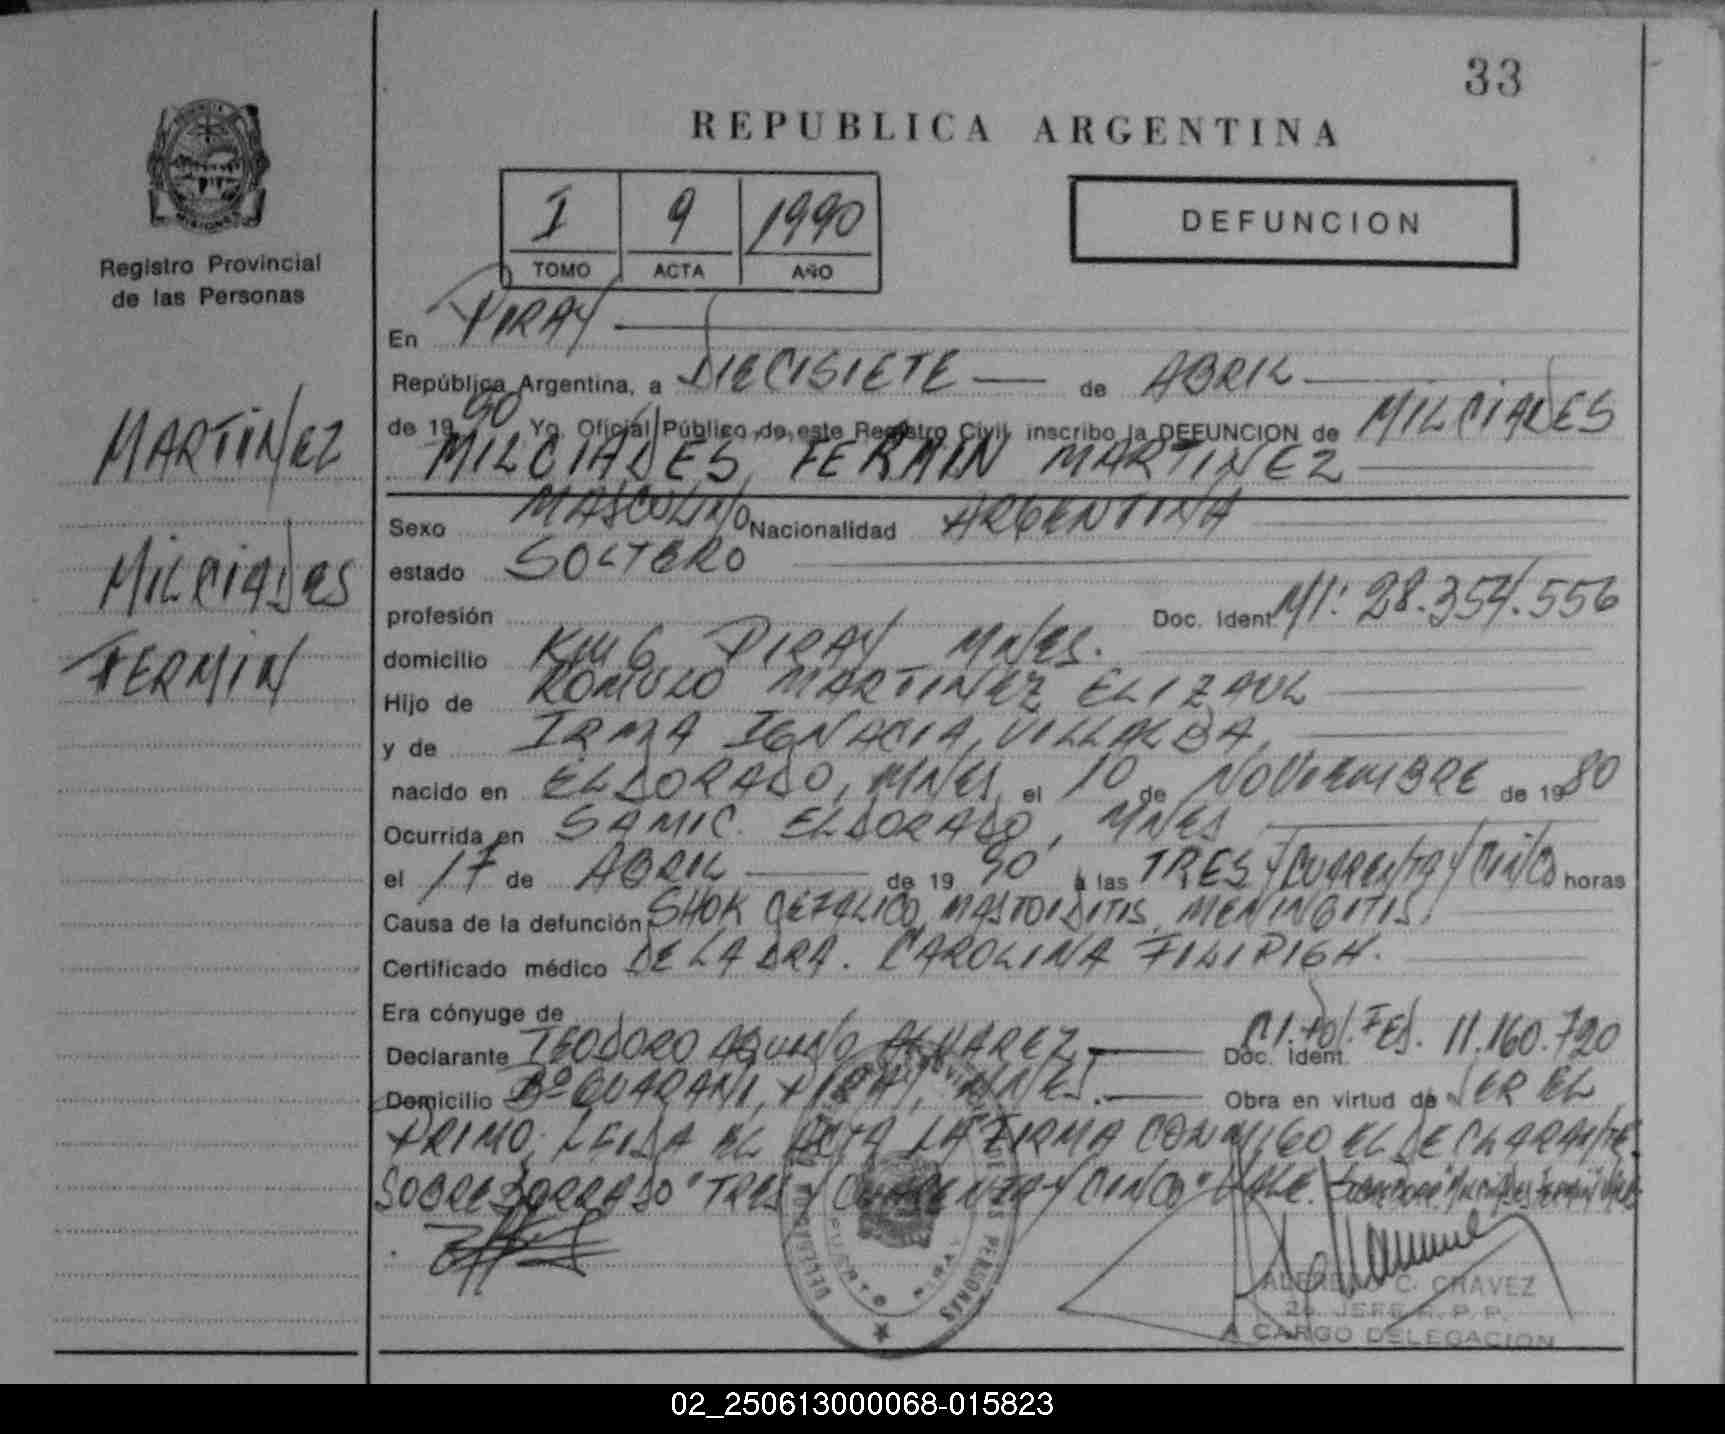 33
REPUBLICA ARGENTINA
I 9 1990
TOMO ACTA AÑO
DEFUNCION
Registro Provincial
de las Personas
MARTINEZ
MILCIADES
FERMIN
En PIRAY
República Argentina, a DIECISIETE de ABRIL
de 1990 Yo, Oficial Público de este Registro Civil, inscribo la DEFUNCION de MILCIADES
MILCIADES FERMIN MARTINEZ
Sexo MASCULINO Nacionalidad ARGENTINA
estado SOLTERO
profesión Doc. Ident. MI: 28.354.556
domicilio KM 6 PIRAY MNES.
Hijo de ROMULO MARTINEZ
y de IRMA IGNACIA, VILLALBA,
nacido en ELDORADO, MNES, el 10 de NOVIEMBRE de 1980
Ocurrida en SAMIC. ELDORADO, MNES
el 17 de ABRIL de 1990 a las TRES Y CUARENTA Y CINCO horas
Causa de la defunción SHOK CEFALICO, MASTOIDITIS, MENINGITIS
Certificado médico DE LA DRA. CAROLINA
Era cónyuge de
Declarante TEODORO AQUINO ALVAREZ Doc. Ident. C.I. POL. FED. 11.160.720
Domicilio Bº GUARANI, PIRAY, MNES. Obra en virtud de SER EL
PRIMO. LEIDA EL ACTA LA FIRMA CONMIGO EL DECLARANTE.
SOBREBORRADO "TRES Y CUARENTA Y CINCO" VALE.
DELEGACION PUERTO PIRAY
DE LAS PERSONAS
ALFREDO C. CHAVEZ
2do JEFE R.P.P.
A CARGO DELEGACION
02_250613000068-015823